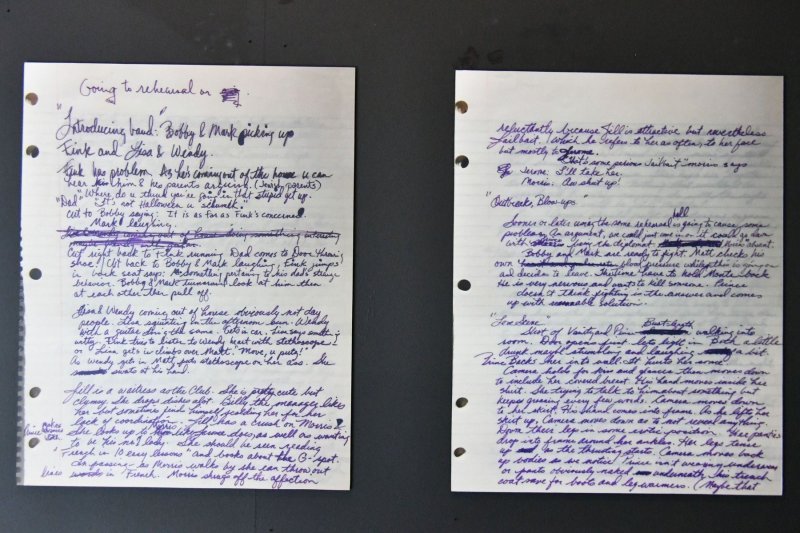 Going to rehearsal or
"Introducing band": Bobby & Mark picking up
Fink and Lisa & Wendy.
Fink has problem. As he's coming out of the house u can
hear him & his parents arguing. (Jewish parents)
"Where do u think you're goin' in that stupid get up.
"Dad" It's not Halloween u schmuck."
Cut to Bobby saying: It is as far as Fink's concerned.
Mark laughing.
Cut right back to Fink running. Dad comes to Door throwing
shoe! Cut back to Bobby & Mark laughing, Fink jumps
in back seat says: something pertaining to his dad's strange
behavior. Bobby & Mark turn around look at him then
at each other then pull off.
Lisa & Wendy coming out of house obviously not day
people. Lisa squinting in the afternoon sun. Wendy
with a guitar she & the same. Gets in car. Lisa says
witty. Fink tries to listen to Wendy heart with stethoscope!
or "Lisa gets in climbs over Matt. "Move, u putz!"
As wendy gets in Matt puts stethoscope on her ass. She
swats at his hand.
Jill is a waitress at the Club. She is pretty cute but
clumsy she drops dishes alot. Billy the manager likes
her but sometimes finds himself scolding her for her
lack of coordination. Jill has a crush on Morris.
She looks up to like Jerome does, as well as wanting
to be his no.1 lady. She should be seen reading
"French in 10 easy lessons" and books about the G-spot.
In passing - as Morris walks by she can throw out
lines in French. Morris shrugs off the affection
reluctantly because Jill is attractive but nevertheless
Jailbait. Which he refers to her as often, to her face
but mostly to Jerome.
"That's some serious Jailbait" morris says
Jerome: I'll take her.
Morris: Aw shut up!
"Outbreaks, Blow ups"
Sooner or later using the same rehearsal hall is going to cause some
problems. An argument, we could just come in on it could be ours
with from the diplomat
Bobby and Mark are ready to fight. Matt checks his
own
and decides to leave. The Time have to hold Monte back
He is very nervous and wants to kill someone. Prince
does it Think fighting is the answer and comes
up with solution.
"Love Scene"
Shot of Vanity and Prince Bust length walking into
room. Door opens first lets light in Both a little
drunk maybe stumbling and laughing a bit.
Prince Backs her into wall. It hurts her some.
Camera holds for kiss and glances then moves down
to include her covered breast. His hand moves inside her
shirt. She trying to talk to him about something but
keeps gasping every few words. Camera moves down
to her skirt. His hand comes into frame. As he lifts her
skirt up, Camera moves down as to not reveal anything
from. Her panties
drop into frame around her ankles. Her legs tense
up as the thrusting starts. Camera moves back
up bodies as we notice Prince isn't wearing underwear
or pants obviously naked underneath his trench
coat save for boots and leg warmers. (Maybe that